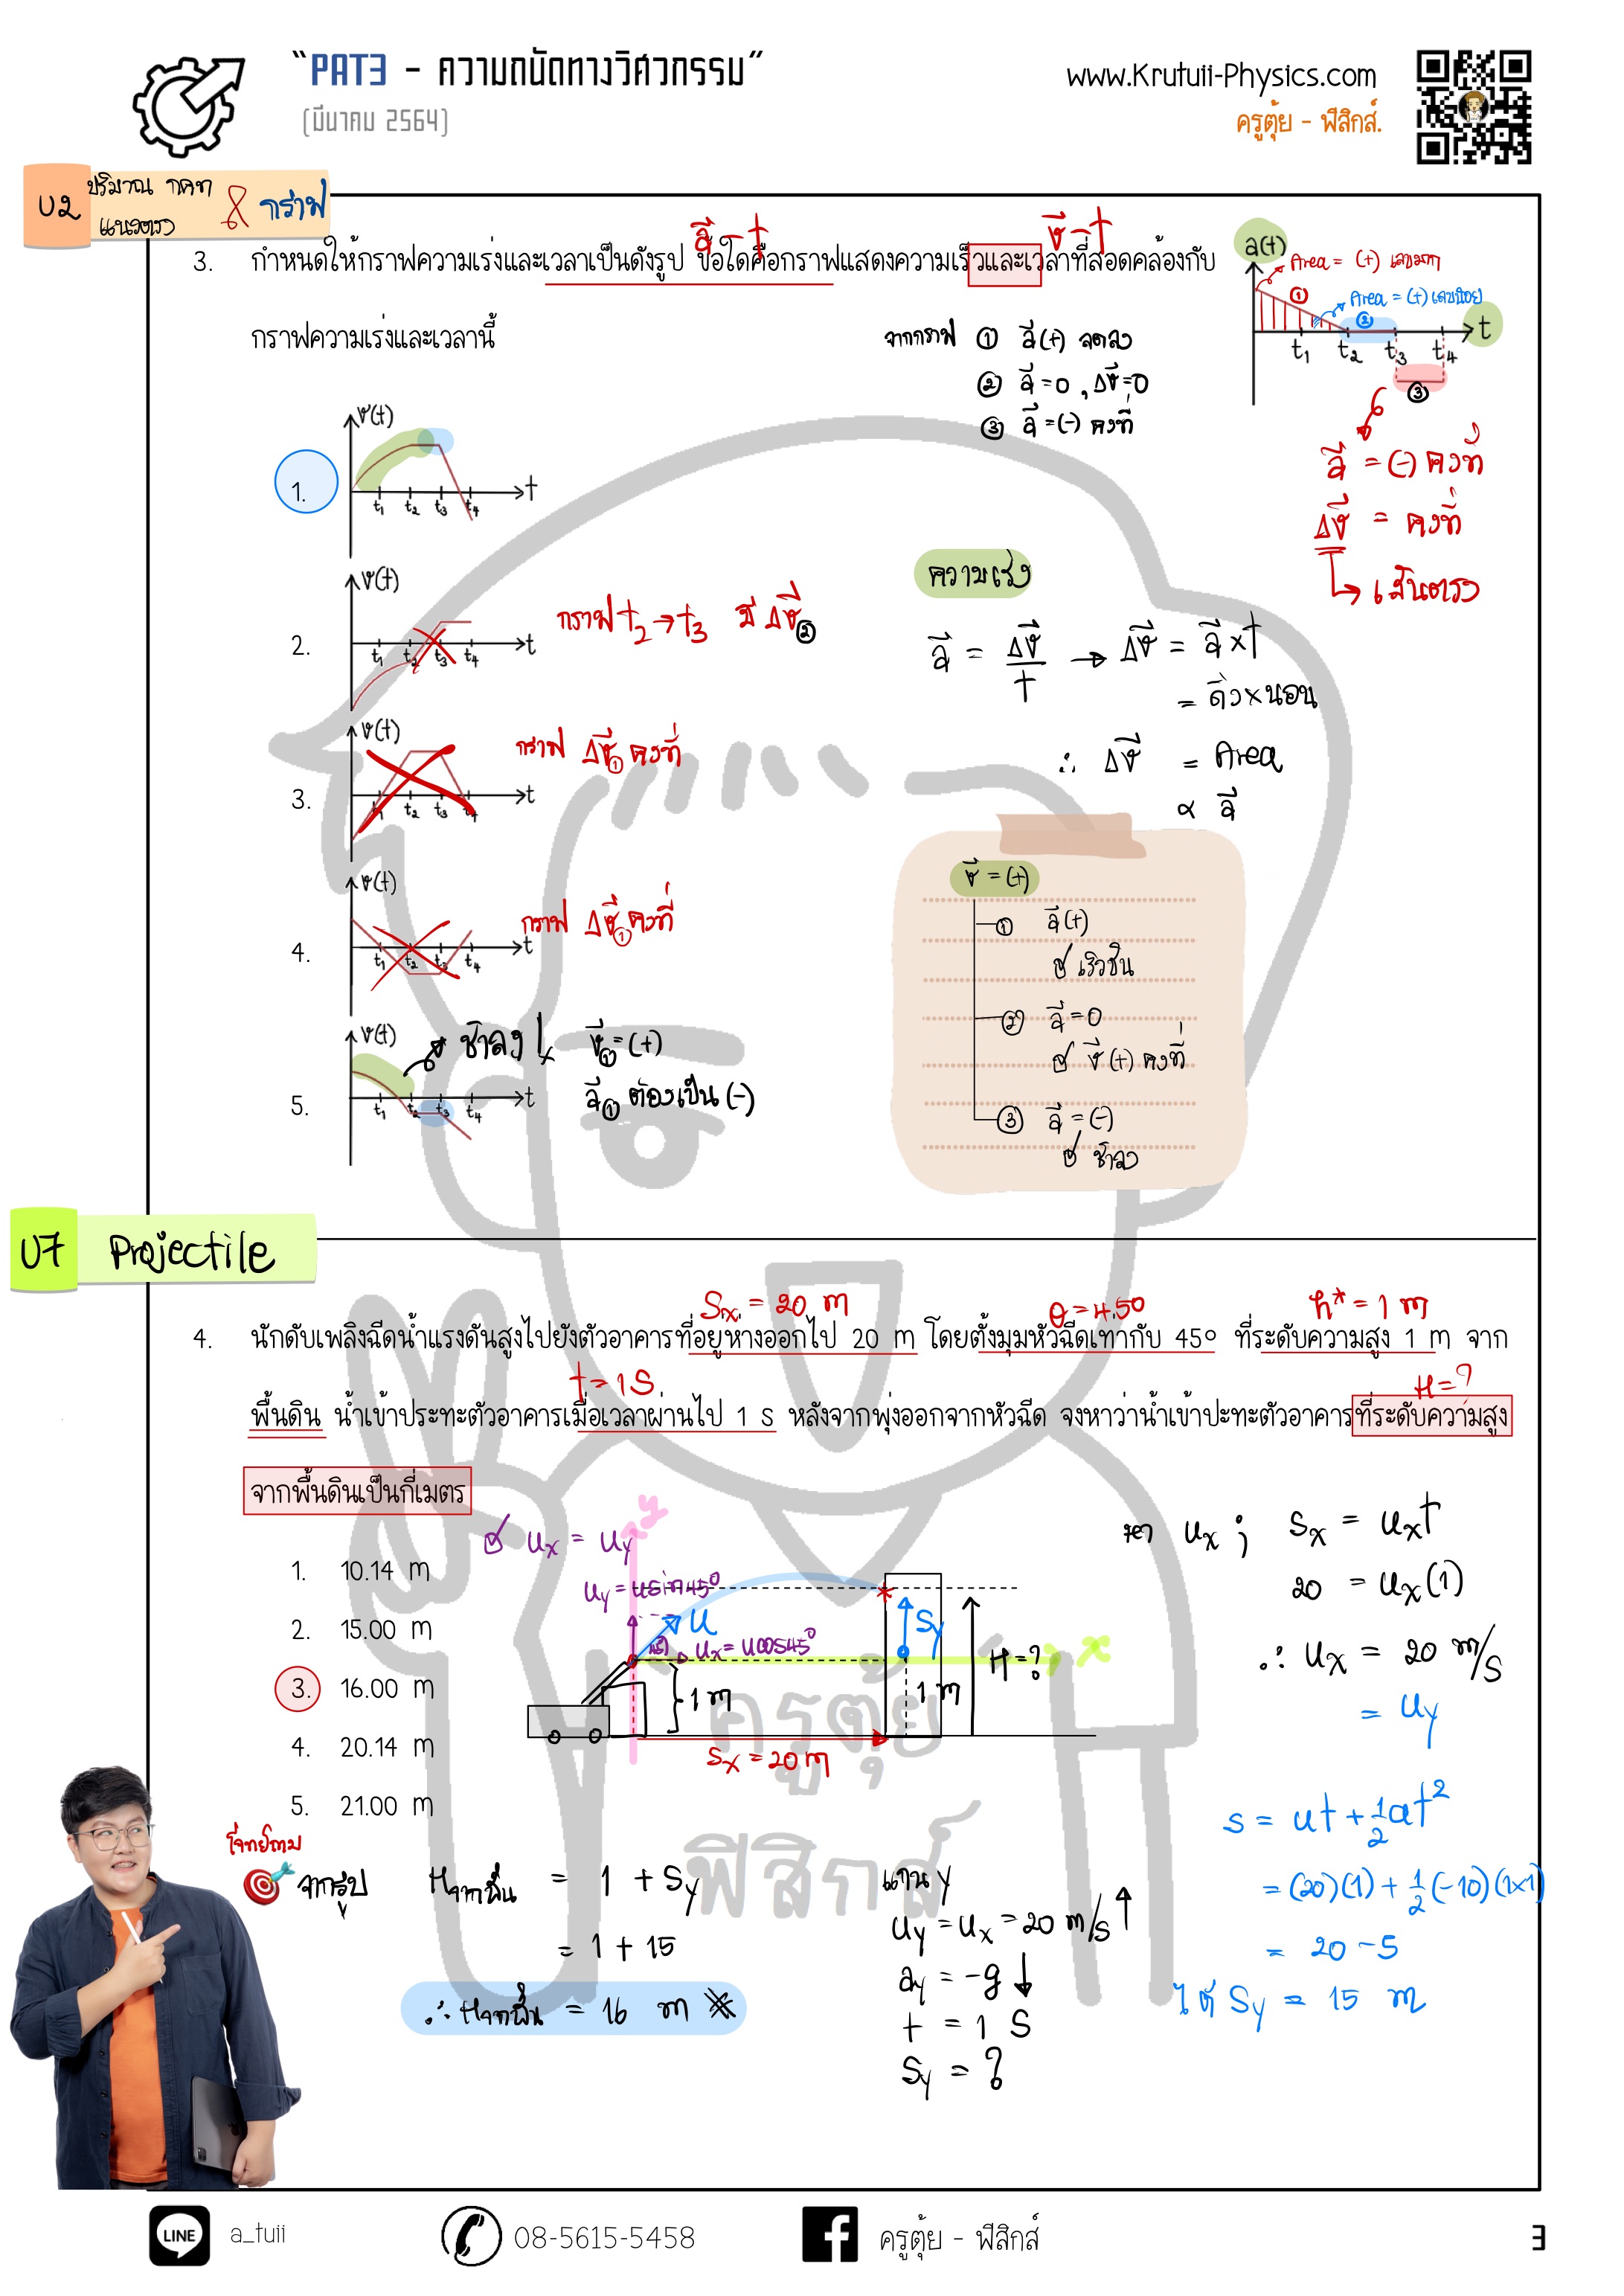 “PAT3 - ความถนัดทางวิศวกรรม”
(มีนาคม 2564)
www.Krutuii-Physics.com
ครูตุ้ย - ฟิสิกส์.
บ2 ปริมาณ กคท แนวตรง & กราฟ
a-t
v-t
3. กำหนดให้กราฟความเร่งและเวลาเป็นดังรูป ข้อใดคือกราฟแสดงความเร็วและเวลาที่สอดคล้องกับ
กราฟความเร่งและเวลานี้
จากกราฟ ① a(+) ลดลง
② a = 0 , Δv = 0
③ a = (-) คงที่
a(t)
Area = (+) เลขมาก
①
Area = (+) เลขน้อย
②
t
t₁ t₂ t₃ t₄
③
a = (-) คงที่
Δv = คงที่
↳ เส้นตรง
1.
v(t)
t
t₁ t₂ t₃ t₄
2.
v(t)
t
t₁ t₂ t₃ t₄
กราฟ t₂→t₃ มี Δv②
3.
v(t)
t
t₂ t₃
กราฟ Δv① คงที่
4.
v(t)
t
t₁ t₂ t₃ t₄
กราฟ Δv① คงที่
5.
v(t)
t
t₁ t₂ t₃ t₄
ช้าลง
v① = (+)
a① ต้องเป็น (-)
ความเร่ง
a = Δv/t → Δv = a × t
= ดิ่ง × นอน
∴ Δv = Area
∝ a
v = (+)
① a(+)
เร็วขึ้น
② a = 0
v(+) คงที่
③ a = (-)
ช้าลง
บ7 Projectile
Sx = 20 m
θ = 45°
h* = 1 m
4. นักดับเพลิงฉีดน้ำแรงดันสูงไปยังตัวอาคารที่อยู่ห่างออกไป 20 m โดยตั้งมุมหัวฉีดเท่ากับ 45° ที่ระดับความสูง 1 m จาก
t = 1 s
H = ?
พื้นดิน น้ำเข้าประทะตัวอาคารเมื่อเวลาผ่านไป 1 s หลังจากพุ่งออกจากหัวฉีด จงหาว่าน้ำเข้าปะทะตัวอาคารที่ระดับความสูง
จากพื้นดินเป็นกี่เมตร
1. 10.14 m
2. 15.00 m
3. 16.00 m
4. 20.14 m
5. 21.00 m
ux = uy
y
uy = usin45°
u
45°
ux = ucos45°
x
Sy
H = ?
1 m
1 m
Sx = 20 m
หา ux ; Sx = uxt
20 = ux(1)
∴ ux = 20 m/s
= uy
s = ut + ½at²
= (20)(1) + ½(-10)(1×1)
= 20 - 5
ได้ Sy = 15 m
โจทย์ถาม
จากรูป Hจากพื้น = 1 + Sy
= 1 + 15
∴ Hจากพื้น = 16 m
แกน y
uy = ux = 20 m/s ↑
ay = -g ↓
t = 1 s
Sy = ?
ครูตุ้ย
ฟิสิกส์
LINE a_tuii
08-5615-5458
ครูตุ้ย - ฟิสิกส์
3